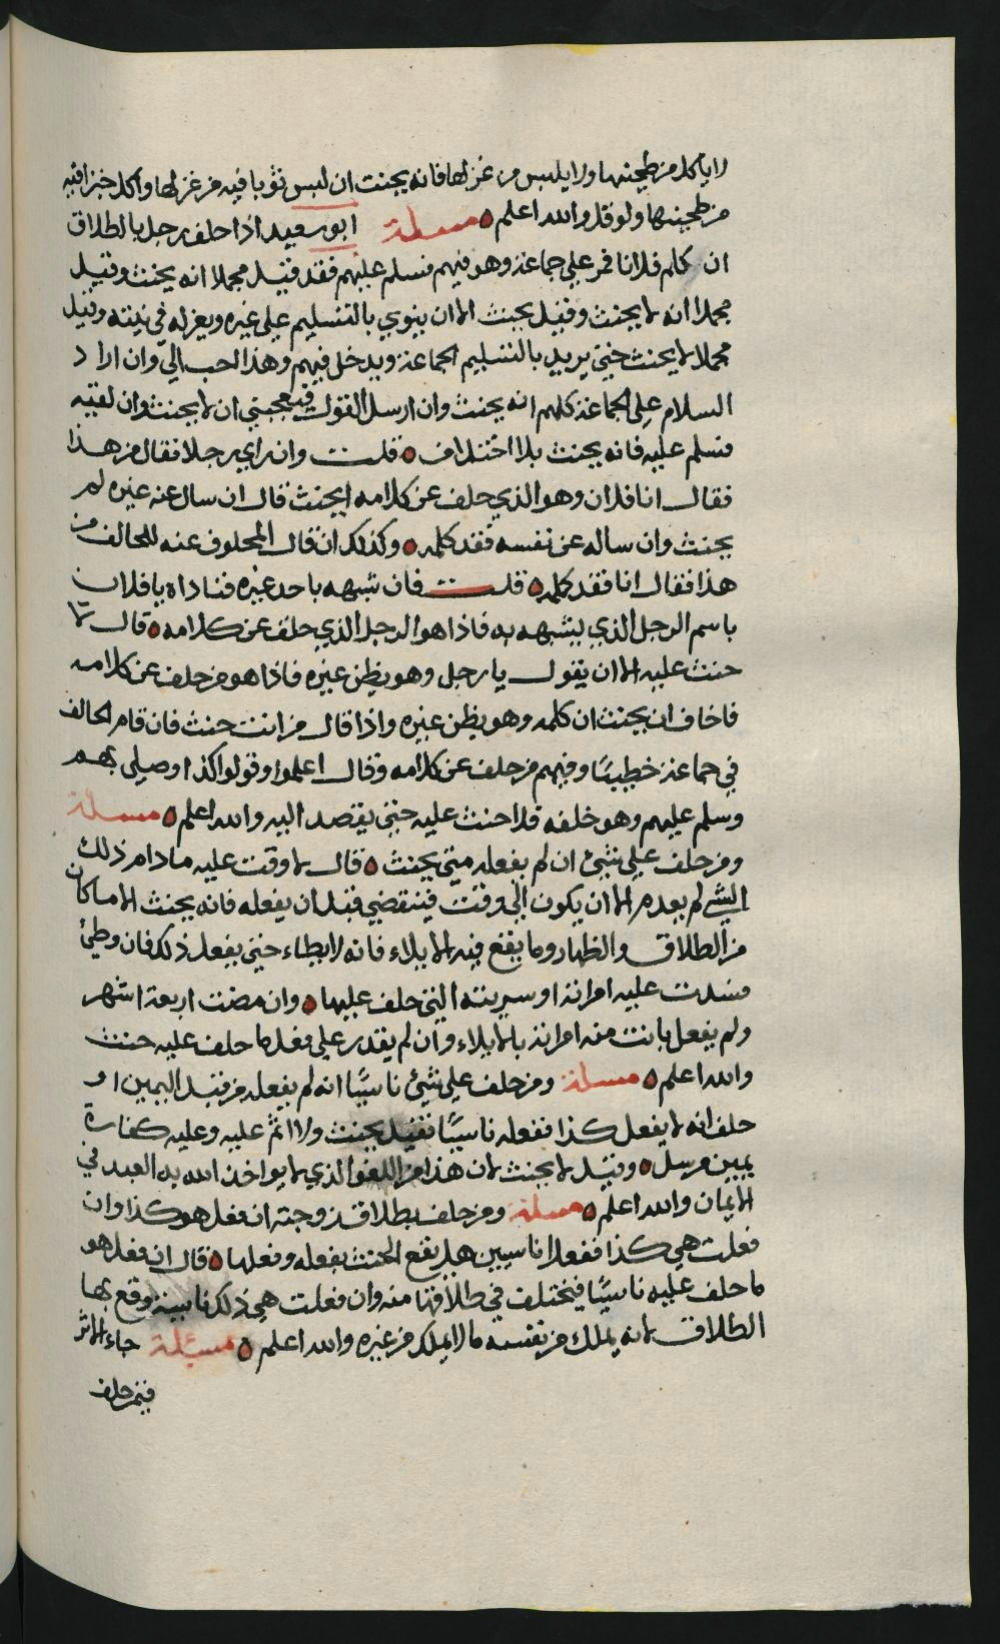 لا ياكل من طحينها ولا يلبس من غزلها فانه يحنث ان لبس ثوبا فيه من غزلها واكل خبزا فيه
من طحينها ولو قل والله اعلم ٥ مسئلة ابو سعيد اذا حلف رجل بالطلاق
ان كلم فلانا فمر على جماعة وهو فيهم فسلم عليهم فقد قيل مجملا انه يحنث وقيل
مجملا انه لا يحنث وقيل يحنث الا ان ينوي بالتسليم على غيره ويعزله في نيته وقيل
مجملا لا يحنث حتى يريد بالتسليم الجماعة ويدخل فيهم وهذا احب الي وان اراد
السلام على الجماعة كلهم انه يحنث وان ارسل القول فيعجبني ان لا يحنث وان لقيه
فسلم عليه فانه يحنث بلا اختلاف ٥ قلت وان راى رجلا فقال من هذا
فقال انا فلان وهو الذي حلف عن كلامه ايحنث قال ان سال عنه غيره لم
يحنث وان ساله عن نفسه فقد كلمه ٥ وكذلك ان قال المحلوف عنه للحالف من
هذا فقال انا فقد كلمه ٥ قلت فان شبهه باحد غيره فناداه يا فلان
باسم الرجل الذي يشبهه به فاذا هو الرجل الذي حلف عن كلامه ٥ قال لا
حنث عليه الا ان يقول يا رجل وهو يظن غيره فاذا هو من حلف عن كلامه
فاخاف ان يحنث ان كلمه وهو يظن غيره واذا قال من انت حنث فان قام الحالف
في جماعة خطيبًا وفيهم من حلف عن كلامه وقال اعلموا وقولوا كذا وصلى بهم
وسلم عليهم وهو خلفه فلا حنث عليه حتى يقصد اليه والله اعلم ٥ مسئلة
ومن حلف على شيء ان لم يفعله متى يحنث ٥ قال لا وقت عليه ما دام ذلك
الشي لم يعدم الا ان يكون الى وقت فينقضي قبل ان يفعله فانه يحنث الا ما كان
من الطلاق والظهار وما يقع فيه الايلاء فانه لا يطاء حتى يفعل ذلك فان وطئ
فسدت عليه امراته او سريته التي حلف عليها ٥ وان مضت اربعة اشهر
ولم يفعل بانت منه امراته بالايلاء وان لم يقدر على فعل ما حلف عليه حنث
والله اعلم ٥ مسئلة ومن حلف على شيئ ناسيًا انه لم يفعله من قبل اليمين او
حلف انه لا يفعل كذا ففعله ناسيًا فقيل يحنث ولا اثم عليه وعليه كفارة
يمين مرسل ٥ وقيل لا يحنث لان هذا من اللغو الذي لا يواخذ الله به العبد في
الايمان والله اعلم ٥ مسئلة ومن حلف بطلاق زوجته ان فعل هو كذا وان
فعلت هي كذا ففعلا ناسيين هل يقع الحنث بفعله وفعلها ٥ قال ان فعل هو
ما حلف عليه ناسيًا فيختلف في طلاقها منه وان فعلت هي ذلك ناسية وقع بها
الطلاق لانه يملك من نفسه ما لا يملك من غيره والله اعلم ٥ مسئلة جاء الاثر
فيمن حلف